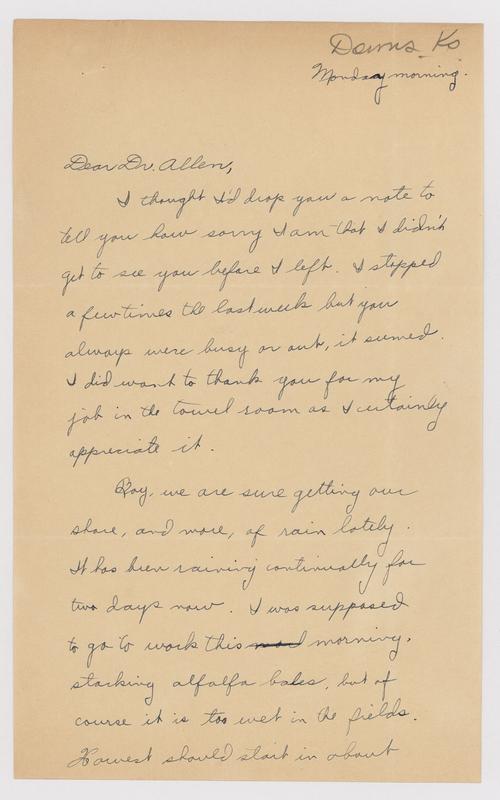 Downs, Ks
Monday morning.
Dear Dr. Allen,
I thought I'd drop you a note to
tell you how sorry I am that I didn't
get to see you before I left. I stopped
a few times the last week but you
always were busy or out, it seemed.
I did want to thank you for my
job in the towel room as I certainly
appreciate it.
Boy, we are sure getting our
share, and more, of rain lately.
It has been raining continually for
two days now. I was supposed
to go to work this morning,
stacking alfalfa bales, but of
course it is too wet in the fields.
Harvest should start in about